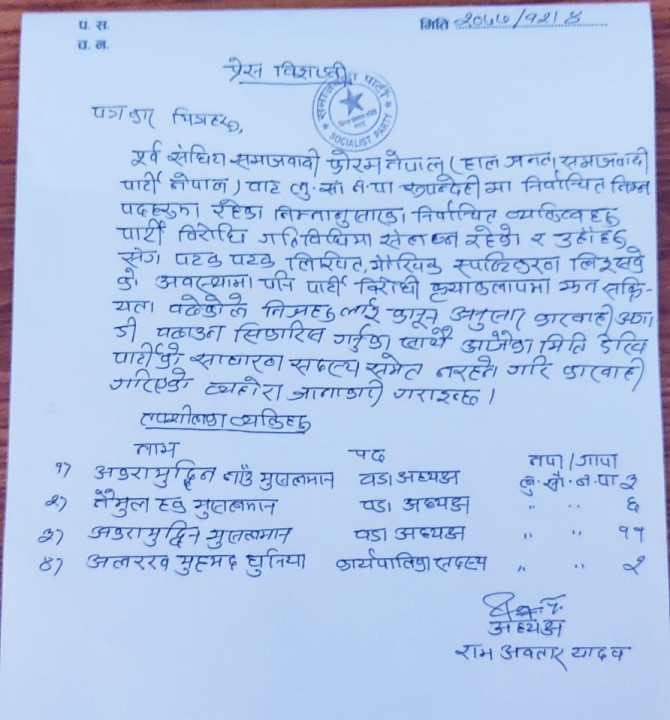 प. स.
च. न.
मिति २०७७/१२/४
प्रेस विज्ञप्ती
समाजवादी पार्टी
SOCIALIST PARTY
पत्रकार मित्रहरु,
पूर्व संघिय समाजवादी फोरम नेपाल (हाल जनता समाजवादी
पार्टी नेपाल) बाट लु. सां न. पा रूपन्देही मा निर्वाचित निम्न
पदहरुमा रहेका निम्नानुसारका निर्वाचित व्यक्तित्वहरु
पार्टी विरोधि गतिविधिमा संलग्न रहेको र उहाँहरु
संग पटक पटक लिखित, मौखिक स्पष्टिकरण लिइसके
को अवस्थामा पनि पार्टी विरोधी कृयाकलापमा झन सक्रि-
यता बढेकोले निजहरु लाई कानून अनुसार कारवाही अगा
डी बढाउन सिफारिस गर्नुका साथै आजैका मिति देखि
पार्टीको साधारण सदस्य समेत नरहने गरि कारवाही
गरिएको व्यहोरा जानकारी गराइन्छ।
तपशीलका व्यक्तिहरु
नाम पद नपा/गापा
१) अकरामुद्दिन नाँउ मुसलमान वडा अध्यक्ष लु. सां. न. पा ३
२) तैमुल हक मुसलमान वडा अध्यक्ष " " ६
३) अकरामुद्दिन मुसलमान वडा अध्यक्ष " " ११
४) अलरख मुहमद धुनिया कार्यपालिका सदस्य " " २
अध्यक्ष
राम अवतार यादव